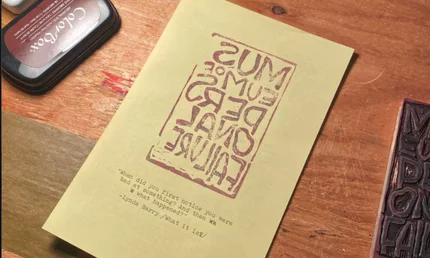 ColorBox
MUS
EUM OF
PERS
ONAL
FAILURE
"When did you first notice you were
bad at something? And then
what happened?"
-Lynda Barry/What it is/